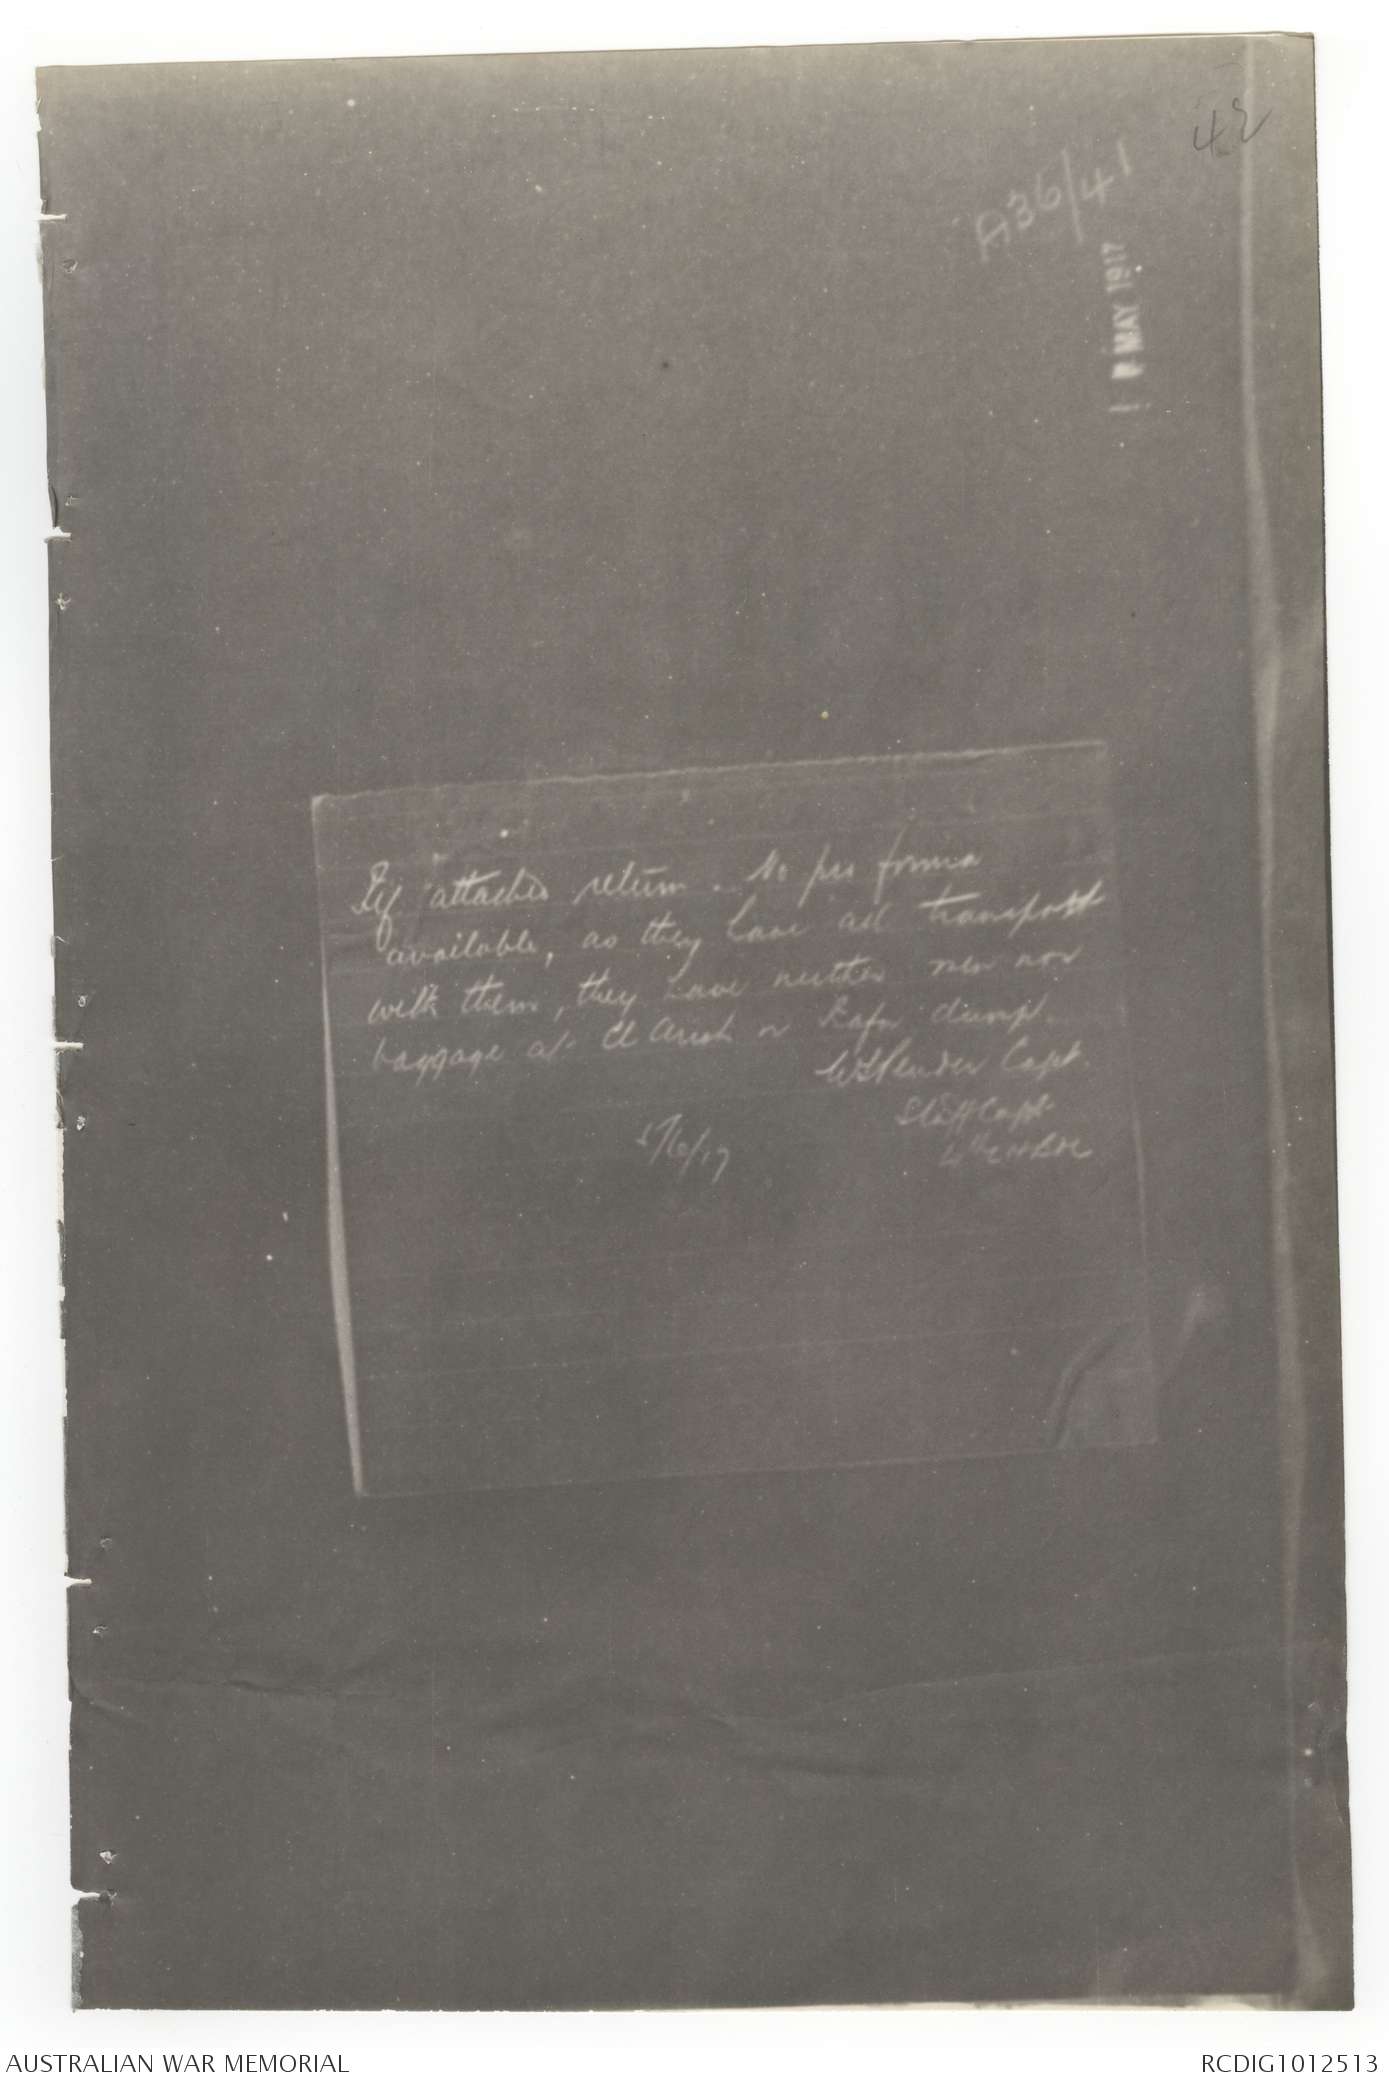 42
A36/41
MAY 1917
attached return. No pro forma
available, as they have all transport
with them, they have neither men nor
baggage at El Arish or Rafa dump.
Capt.
Staff Capt
5/6/17
AUSTRALIAN WAR MEMORIAL
RCDIG1012513